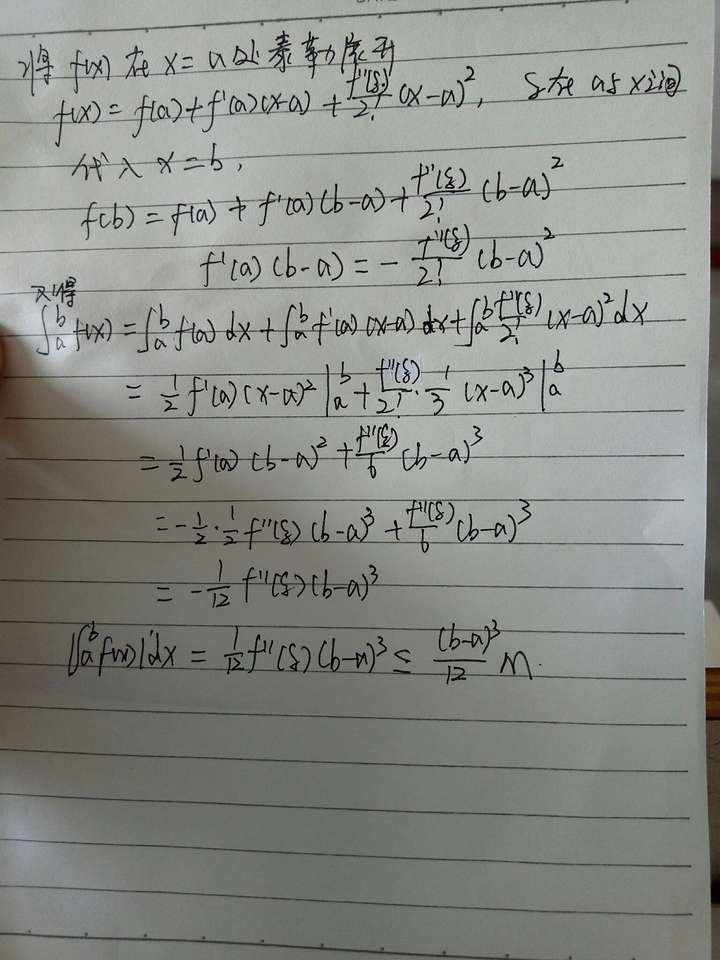 将 f(x) 在 x = a 处泰勒展开
f(x) = f(a) + f'(a)(x-a) + f''(ξ)/2! (x-a)², ξ在 a与x之间
代入 x = b,
f(b) = f(a) + f'(a)(b-a) + f''(ξ)/2! (b-a)²
f'(a)(b-a) = - f''(ξ)/2! (b-a)²
又得
∫_a^b f(x) = ∫_a^b f(a) dx + ∫_a^b f'(a)(x-a) dx + ∫_a^b f''(ξ)/2! (x-a)² dx
= 1/2 f'(a)(x-a)² |_a^b + f''(ξ)/2! · 1/3 (x-a)³ |_a^b
= 1/2 f'(a)(b-a)² + f''(ξ)/6 (b-a)³
= - 1/2 · 1/2 f''(ξ)(b-a)³ + f''(ξ)/6 (b-a)³
= - 1/12 f''(ξ)(b-a)³
|∫_a^b f(x)|dx = 1/12 f''(ξ)(b-a)³ ≤ (b-a)³/12 M.